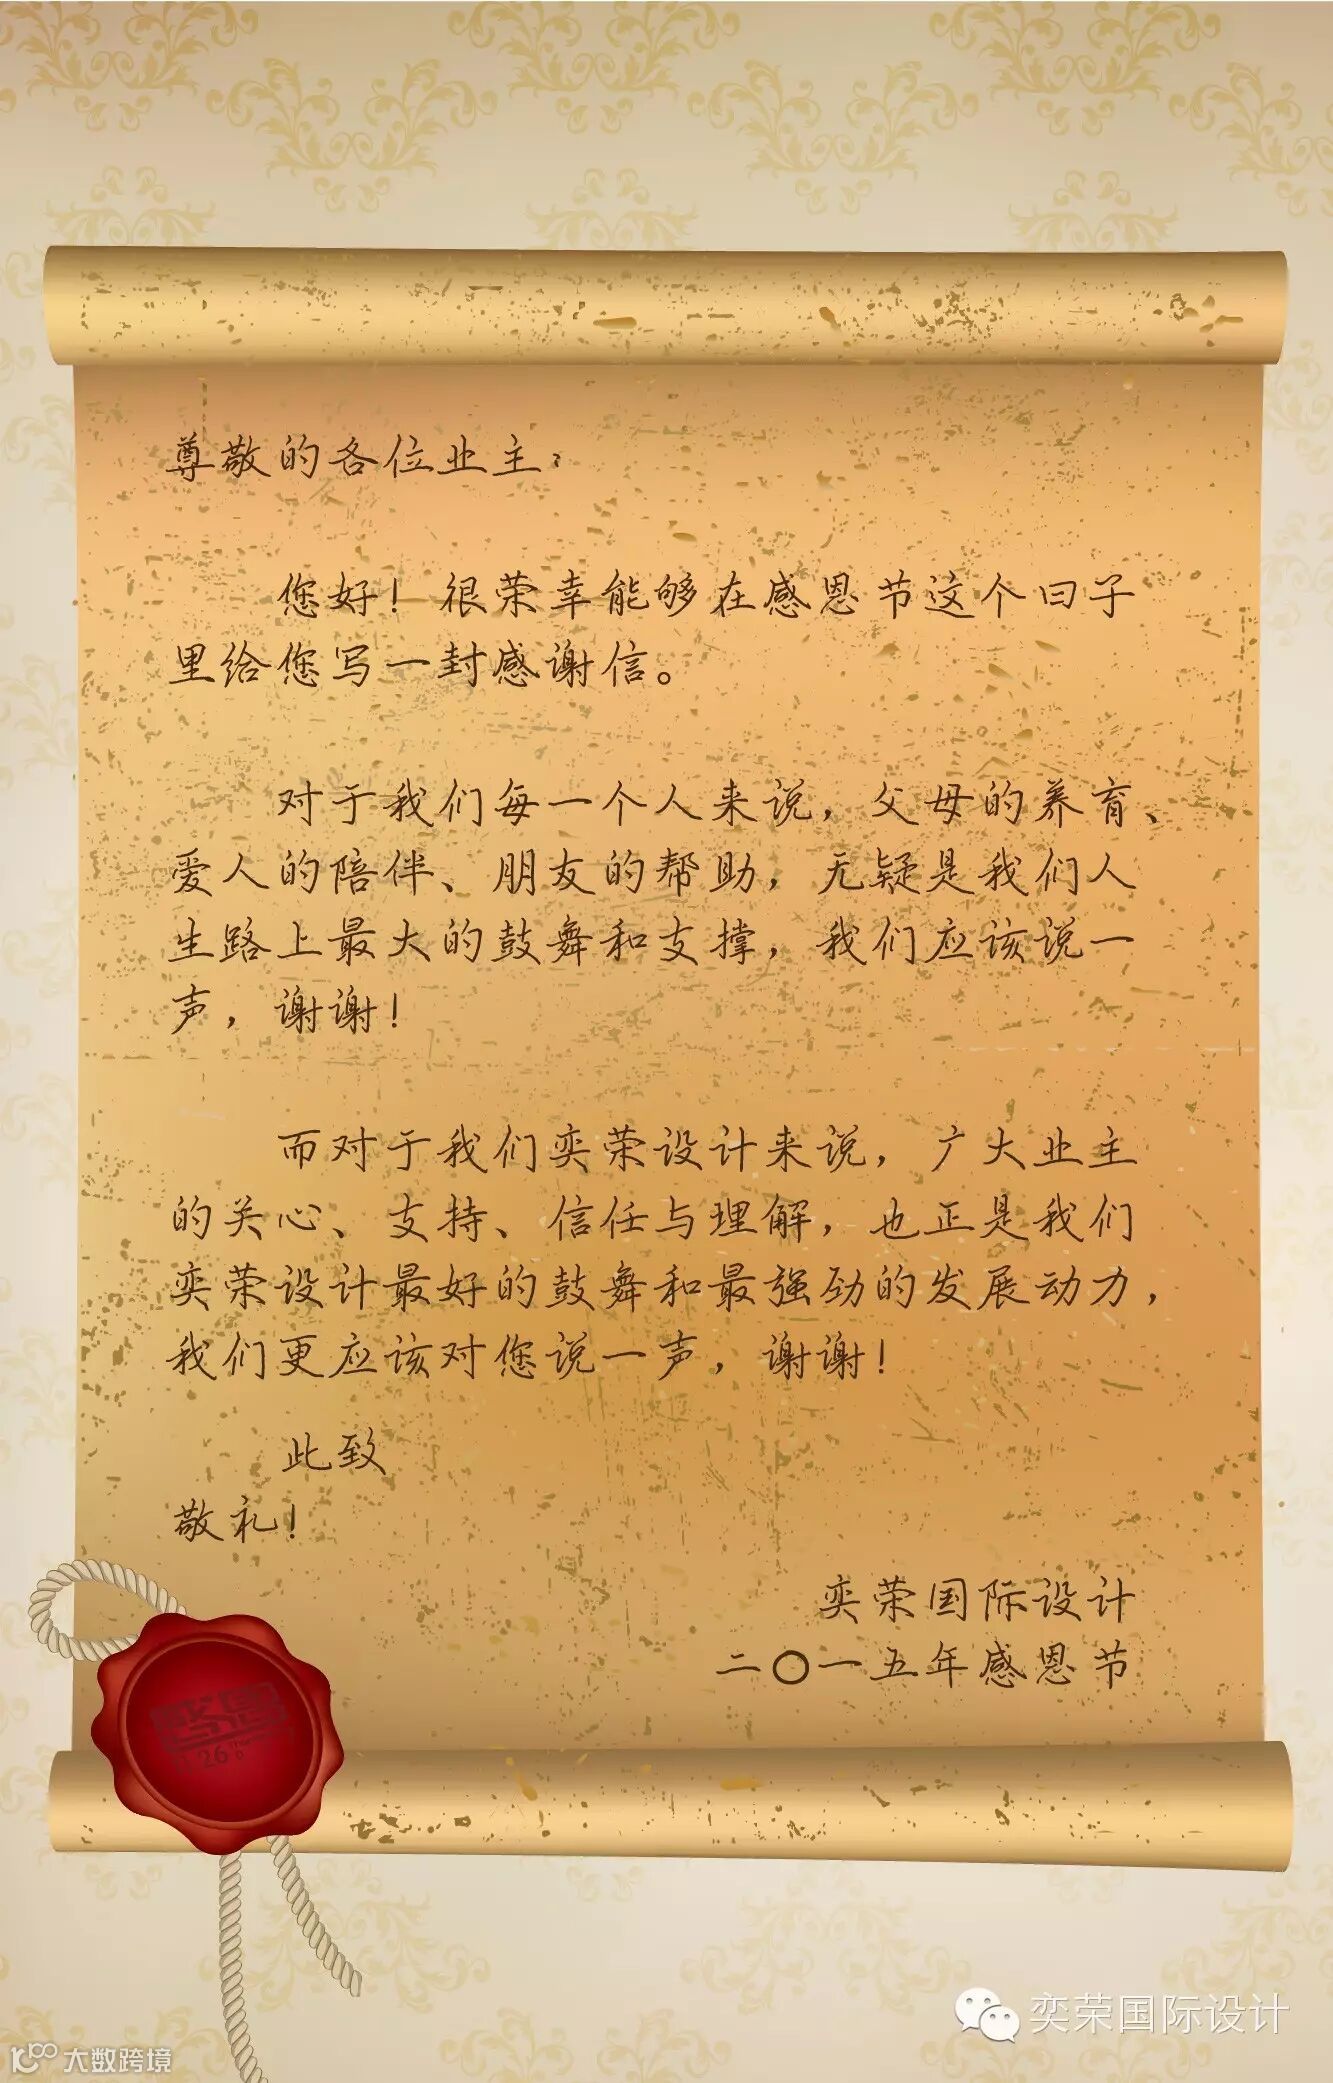 尊敬的各位业主：
您好！很荣幸能够在感恩节这个日子
里给您写一封感谢信。
对于我们每一个人来说，父母的养育、
爱人的陪伴、朋友的帮助，无疑是我们人
生路上最大的鼓舞和支撑，我们应该说一
声，谢谢！
而对于我们奕荣设计来说，广大业主
的关心、支持、信任与理解，也正是我们
奕荣设计最好的鼓舞和最强劲的发展动力，
我们更应该对您说一声，谢谢！
此致
敬礼！
奕荣国际设计
二〇一五年感恩节
感恩
11.26
奕荣国际设计
大数跨境